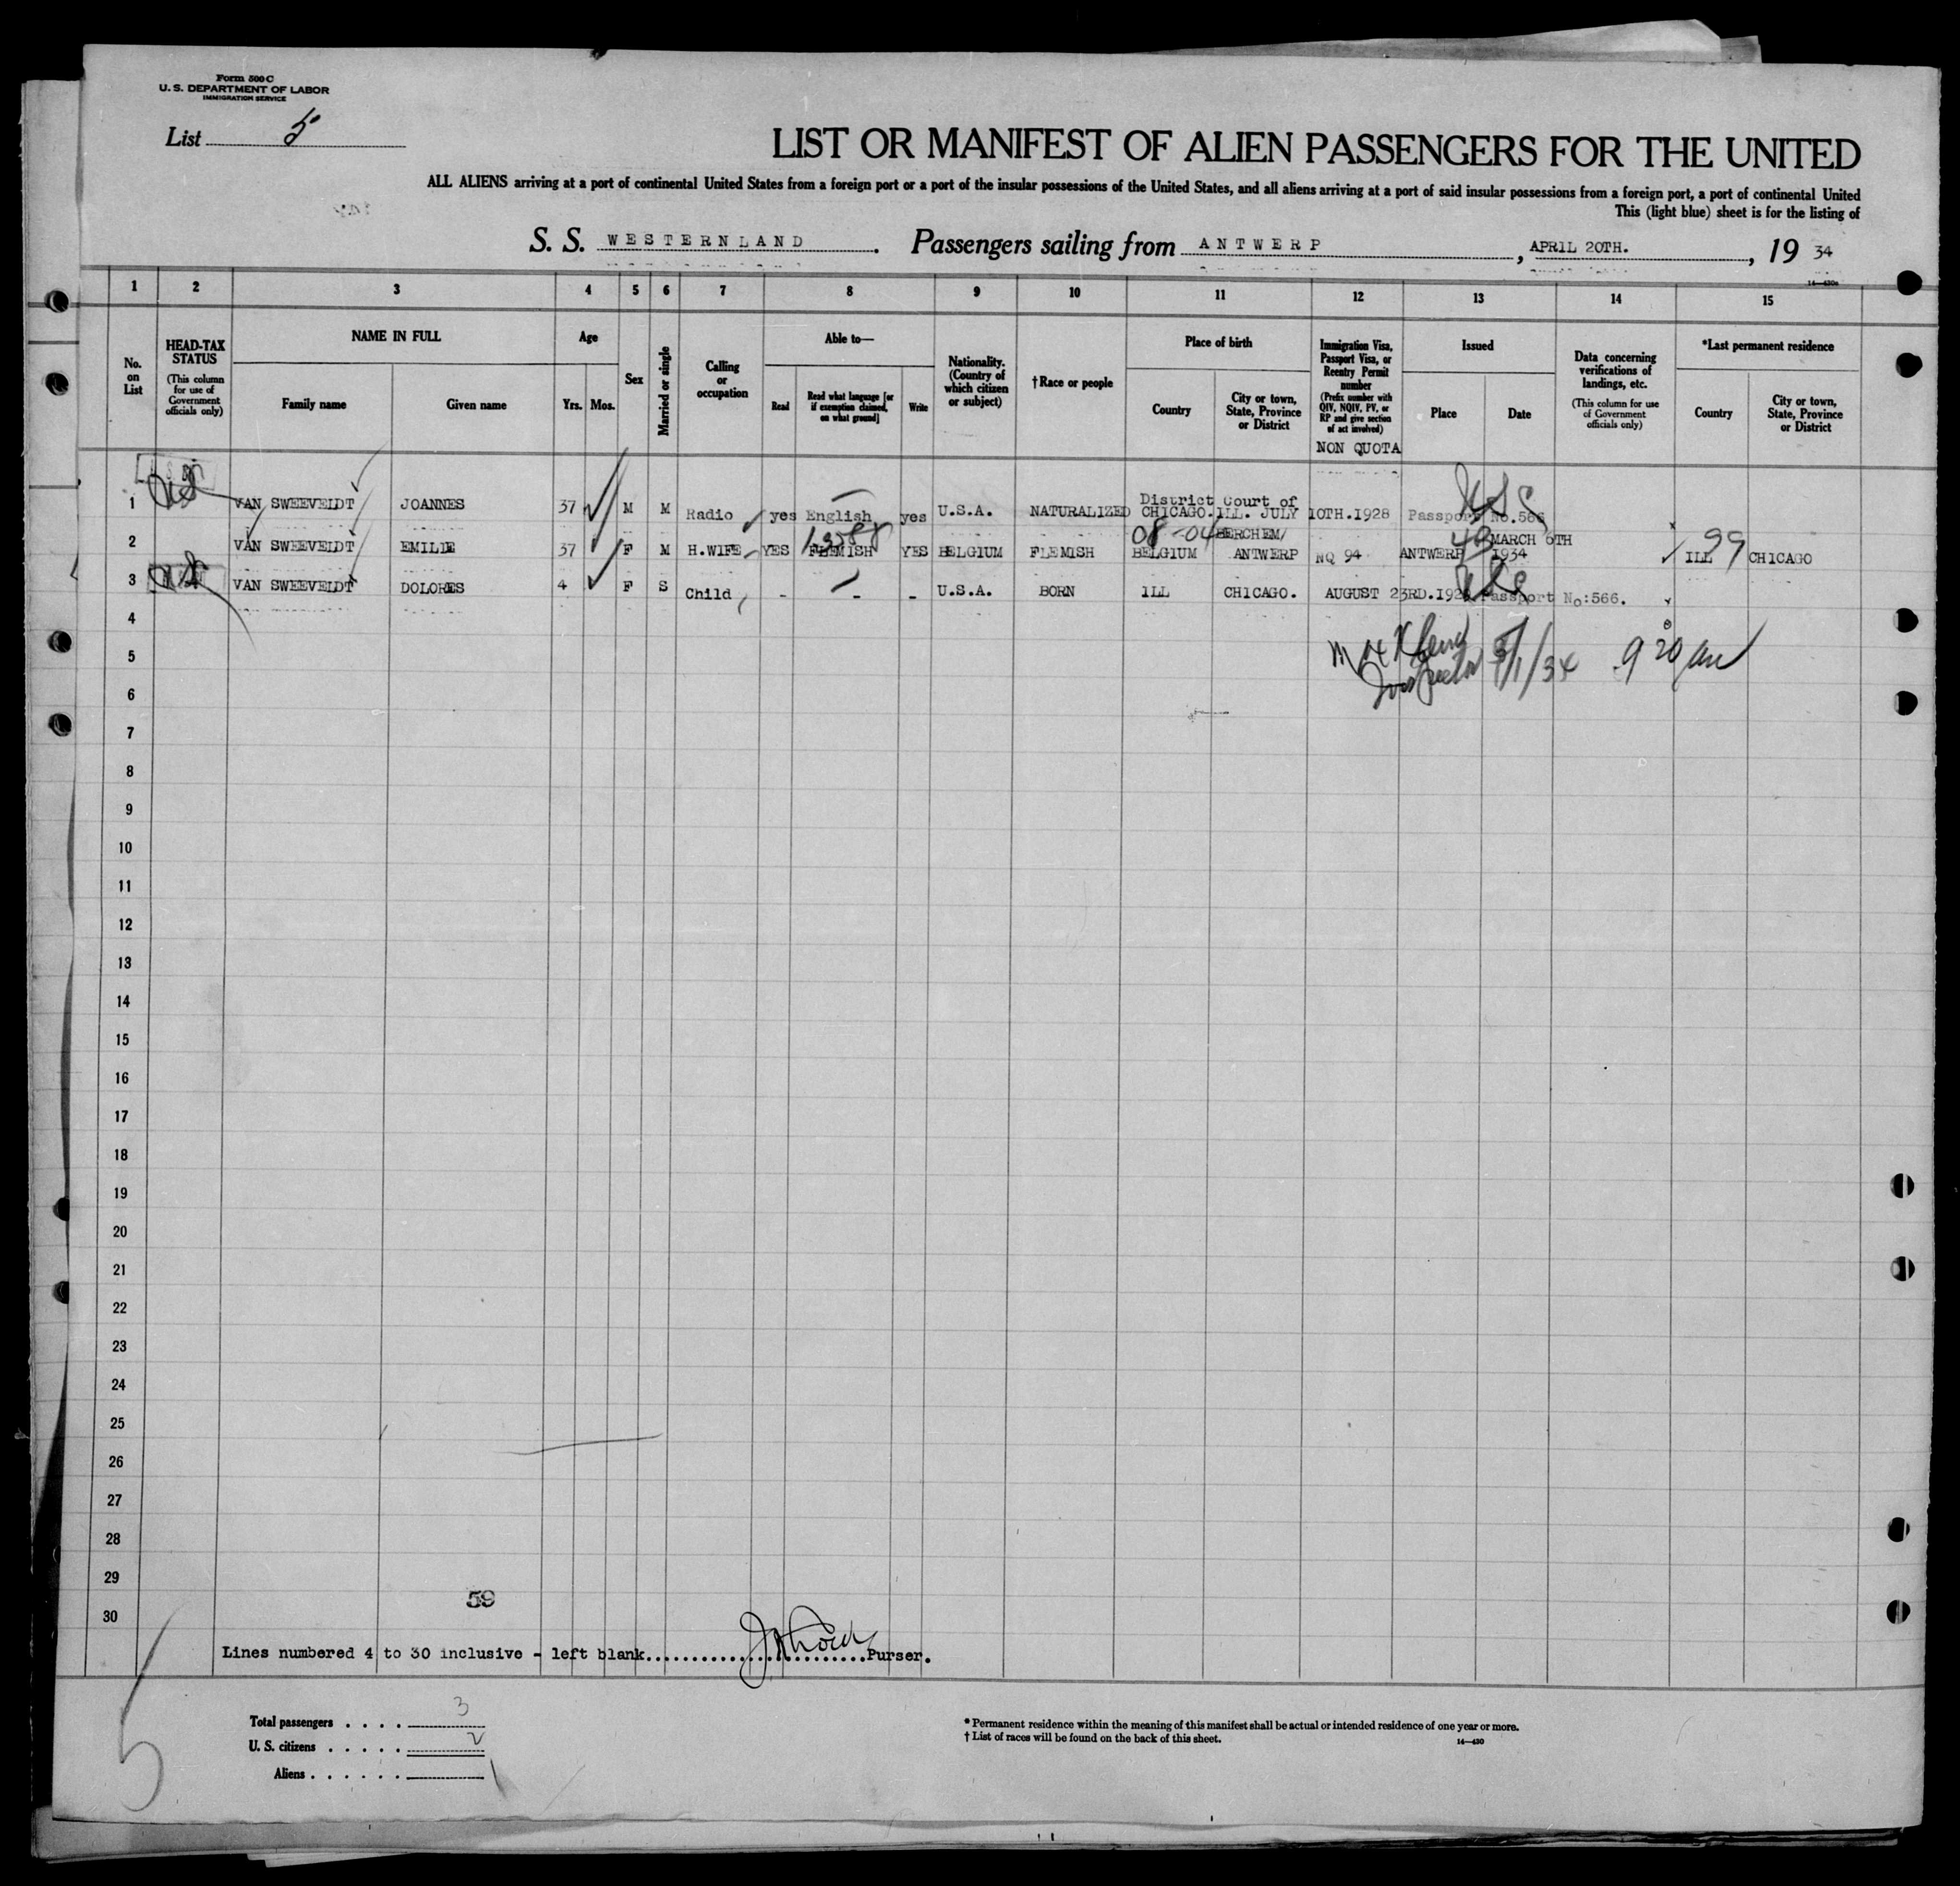 Form 500 C
U. S. DEPARTMENT OF LABOR
IMMIGRATION SERVICE
List 5
LIST OR MANIFEST OF ALIEN PASSENGERS FOR THE UNITED
ALL ALIENS arriving at a port of continental United States from a foreign port or a port of the insular possessions of the United States, and all aliens arriving at a port of said insular possessions from a foreign port, a port of continental United
This (light blue) sheet is for the listing of
S. S. WESTERNLAND. Passengers sailing from ANTWERP, APRIL 20TH., 19 34
14-430a
1 2 3 4 5 6 7 8 9 10 11 12 13 14 15
No. on List
HEAD-TAX STATUS
(This column for use of Government officials only)
NAME IN FULL
Family name Given name
Age
Yrs. Mos.
Sex
Married or single
Calling or occupation
Able to—
Read
Read what language [or if exemption claimed, on what ground]
Write
Nationality. (Country of which citizen or subject)
†Race or people
Place of birth
Country
City or town, State, Province or District
Immigration Visa, Passport Visa, or Reentry Permit number
(Prefix number with QIV, NQIV, PV, or RP and give section of act involved)
NON QUOTA
Issued
Place Date
Data concerning verifications of landings, etc.
(This column for use of Government officials only)
*Last permanent residence
Country
City or town, State, Province or District
District Court of
1 VAN SWEEVELDT JOANNES 37 M M Radio yes English yes U.S.A. NATURALIZED CHICAGO.ILL. JULY 10TH.1928 Passport No.566
08-04 BERCHEM/ MARCH 6TH
2 VAN SWEEVELDT EMILIE 37 F M H.WIFE YES FLEMISH YES BELGIUM FLEMISH BELGIUM ANTWERP NQ 94 ANTWERP 1934 ILL 99 CHICAGO
3 VAN SWEEVELDT DOLORES 4 F S Child - - - U.S.A. BORN ILL CHICAGO. AUGUST 23RD. Passport No:566.
4
5
Inspector 5/1/34 9 20 am
6
7
8
9
10
11
12
13
14
15
16
17
18
19
20
21
22
23
24
25
26
27
28
29
59
30
Lines numbered 4 to 30 inclusive - left blank........................Purser.
5
Total passengers . . . . 3
U. S. citizens . . . . . 2
Aliens . . . . . . 1
* Permanent residence within the meaning of this manifest shall be actual or intended residence of one year or more.
† List of races will be found on the back of this sheet.
14-430